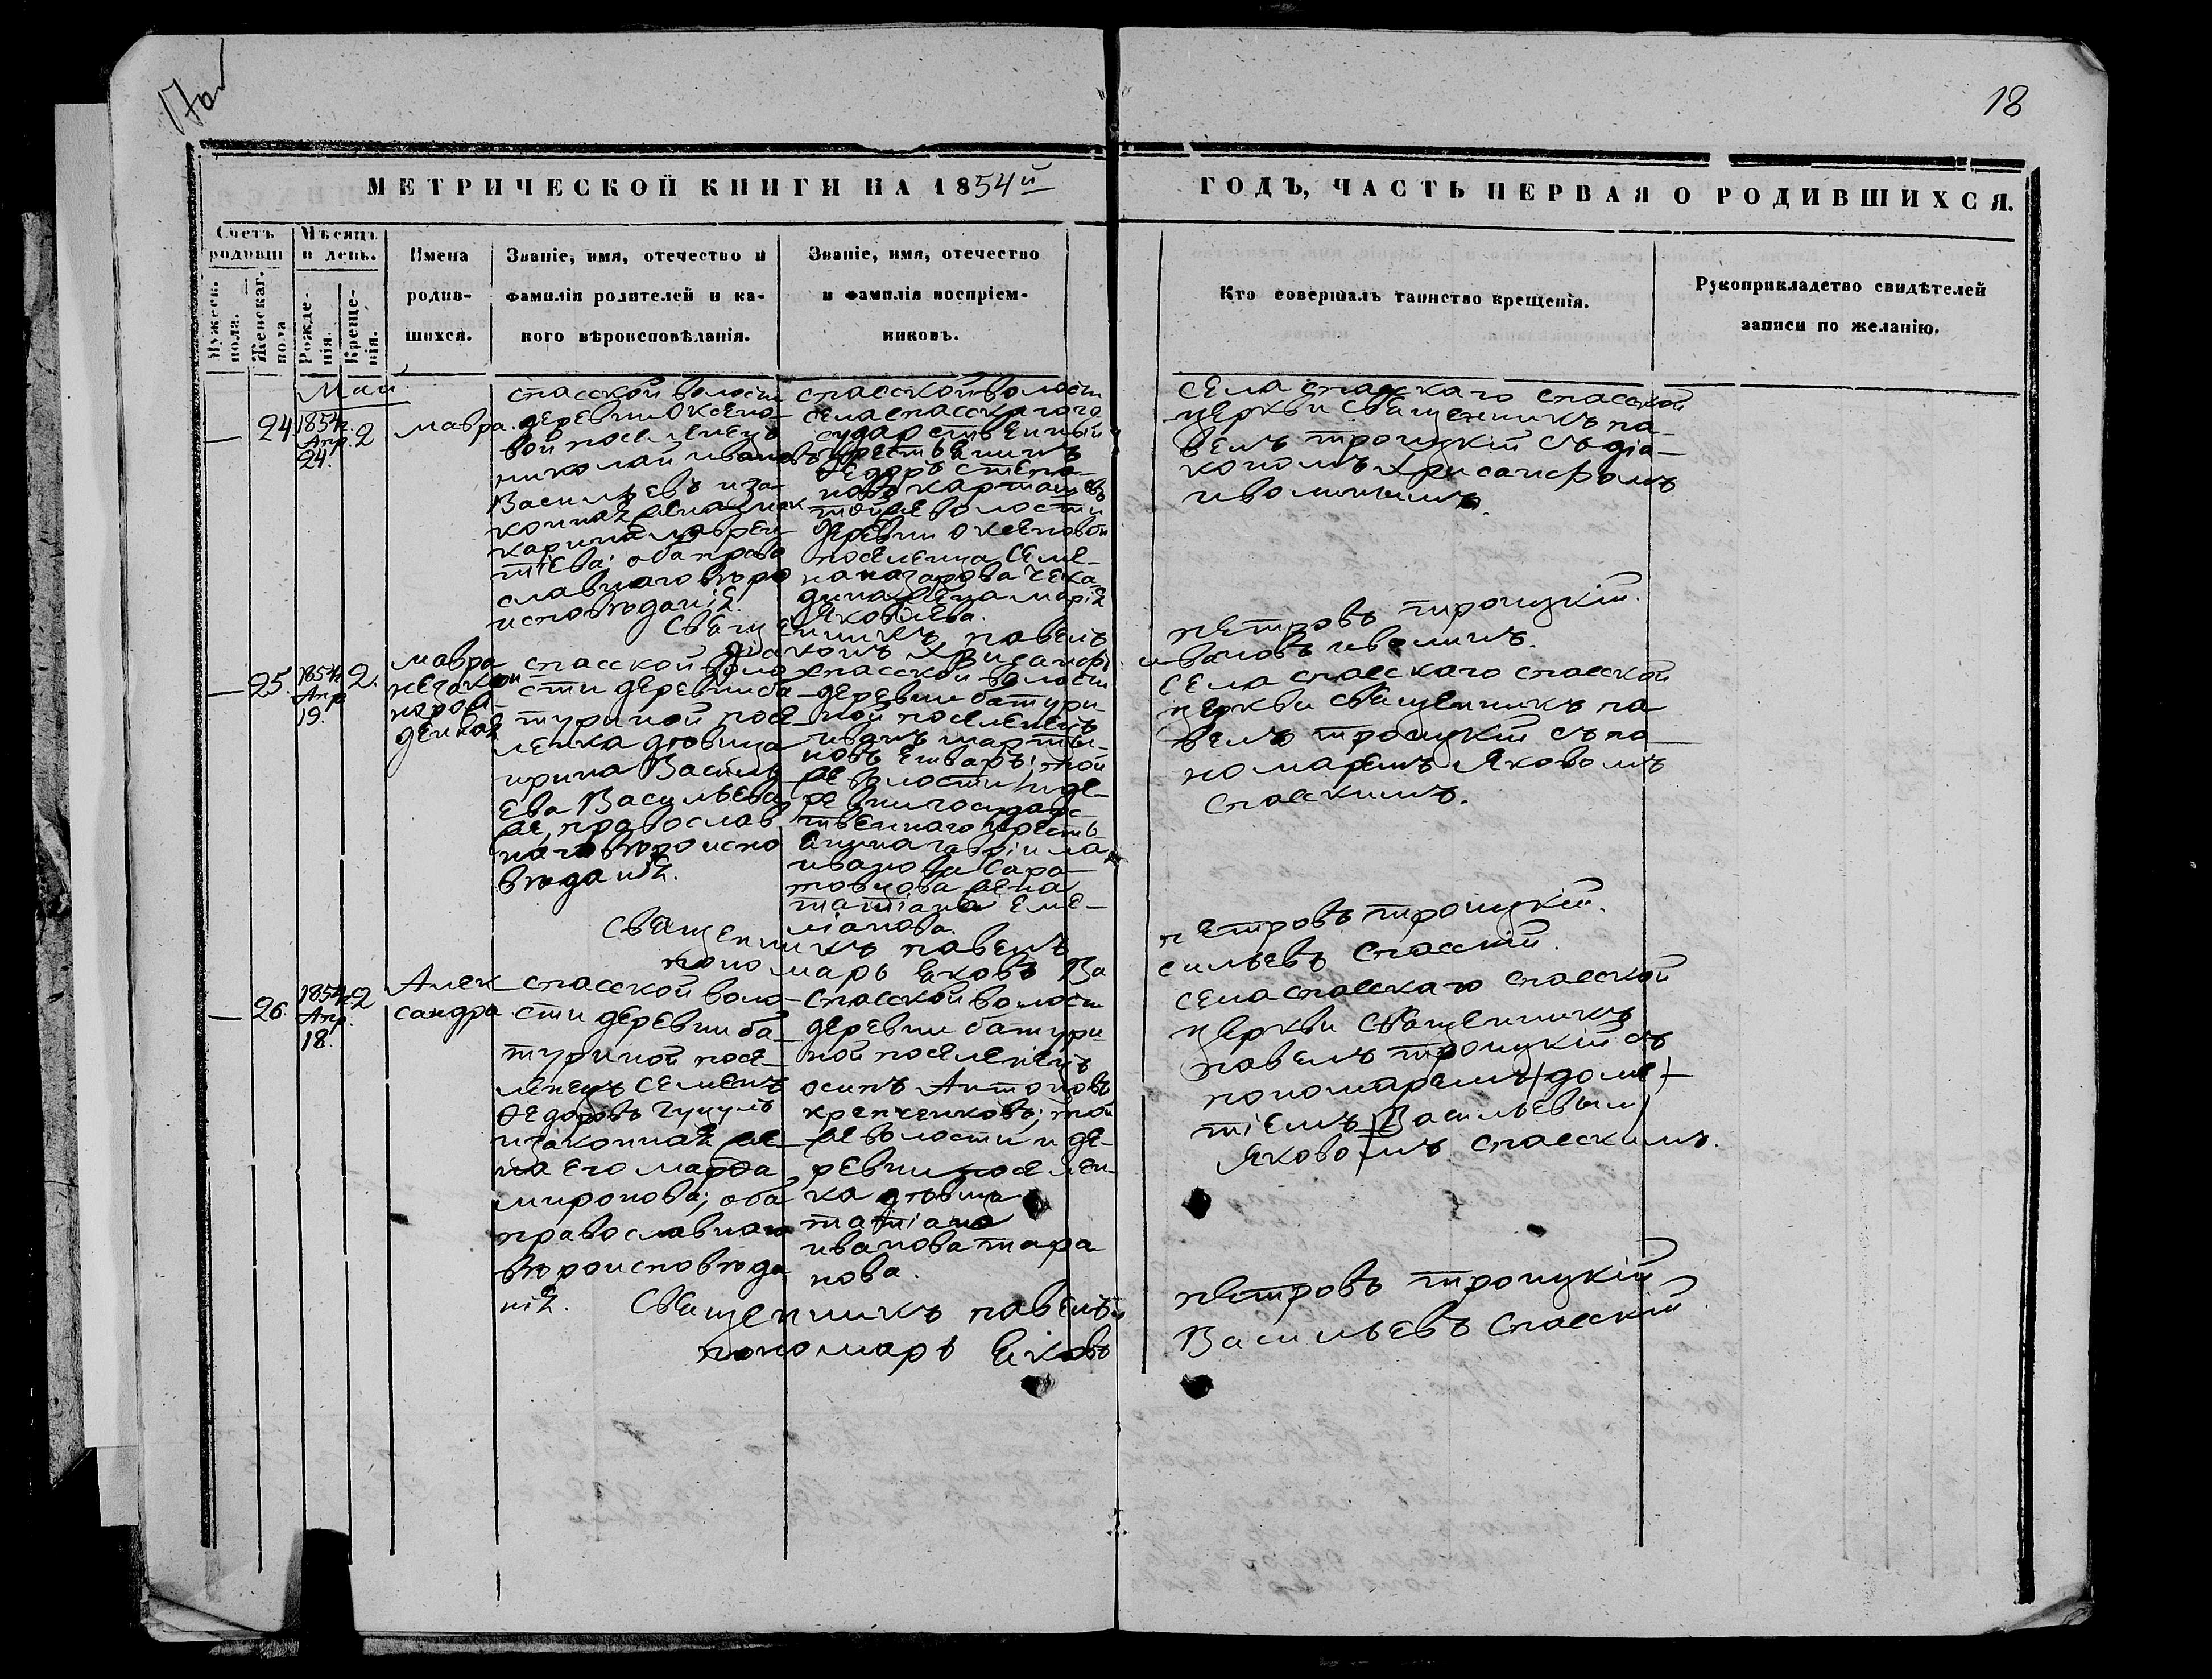 17об
18
МЕТРИЧЕСКОЙ КНИГИ НА 1854й
ГОДЪ, ЧАСТЬ ПЕРВАЯ О РОДИВШИХСЯ.
Счетъ родивш
Мужеск. пола.
Женскаг. пола
Мѣсяцъ и день.
Рожденія.
Крещенія.
Имена
родив-
шихся.
Званіе, имя, отечество и
фамилія родителей и ка-
кого вѣроисповѣданія.
Званіе, имя, отечество
и фамилія воспріем-
никовъ.
Кто совершалъ таинство крещенія.
Рукоприкладство свидѣтелей
записи по желанію.
Май.
—
24
1854г.
Апр.
24.
2
мавра.
спасской волости
деревни Оксено-
вой поселенецъ
николай ивановъ
Васильевъ и за-
конная жена его ек
карина лаврен-
тіева; оба право
славнаго вѣро
исповѣданія.
спасской волости
села спасскаго го
сударственный
крестьянинъ
Ѳедоръ степа-
новъ карташевъ
той же волости
деревни Оксеновой
поселенца Семе-
на назарова чека
дина жена марія
Яковлева.
села спасскаго спасской
церкви священникъ па-
велъ троицкій съ діа-
кономъ Хрисанфомъ
иволинымъ.
Священникъ павелъ
петровъ троицкій.
діаконъ Хрисанфъ
ивановъ иволинъ.
—
25.
1854г
Апр
19.
2.
мавра
незакон
норож
денная
спасской воло
сти деревни ба-
туриной посе-
ленка дѣвица
ирина Василь
ева Васильева
же, православ
наго вѣроиспо
вѣданія.
спасской волости
деревни батури
ной поселенецъ
иванъ марты-
новъ ешваръ; той
же волости и де-
ревни государс-
твеннаго кресть-
янина гавріила
иванова Сара-
товцова жена
татіана Еме-
ліанова.
села спасскаго спасской
церкви священникъ па
велъ троицкій съ по-
номаремъ Яковомъ
Спасскимъ.
Священникъ павелъ
петровъ троицкій.
пономарь Яковъ Ва
сильевъ спасскій.
—
26.
1854г.
Апр.
18.
2
Алек
сандра
спасской воло-
сти деревни ба-
туриной посе-
ленецъ Семенъ
Ѳедоровъ гуцулъ
и законная же-
на его марѳа
миронова; оба
православнаго
вѣроисповѣда
нія.
Спасской волости
деревни батури
ной поселенецъ
осипъ Антоновъ
крепченковъ; той
же волости и де-
ревни поселен-
ка дѣвица
татіана
иванова тара
нова.
села спасскаго спасской
церкви священникъ
павелъ троицкій съ
пономаремъ (доме-
тіемъ Васильевым)
Яковомъ спасскимъ.
Священникъ павелъ
петровъ троицкій
пономарь Яковъ
Васильевъ Спасскій.